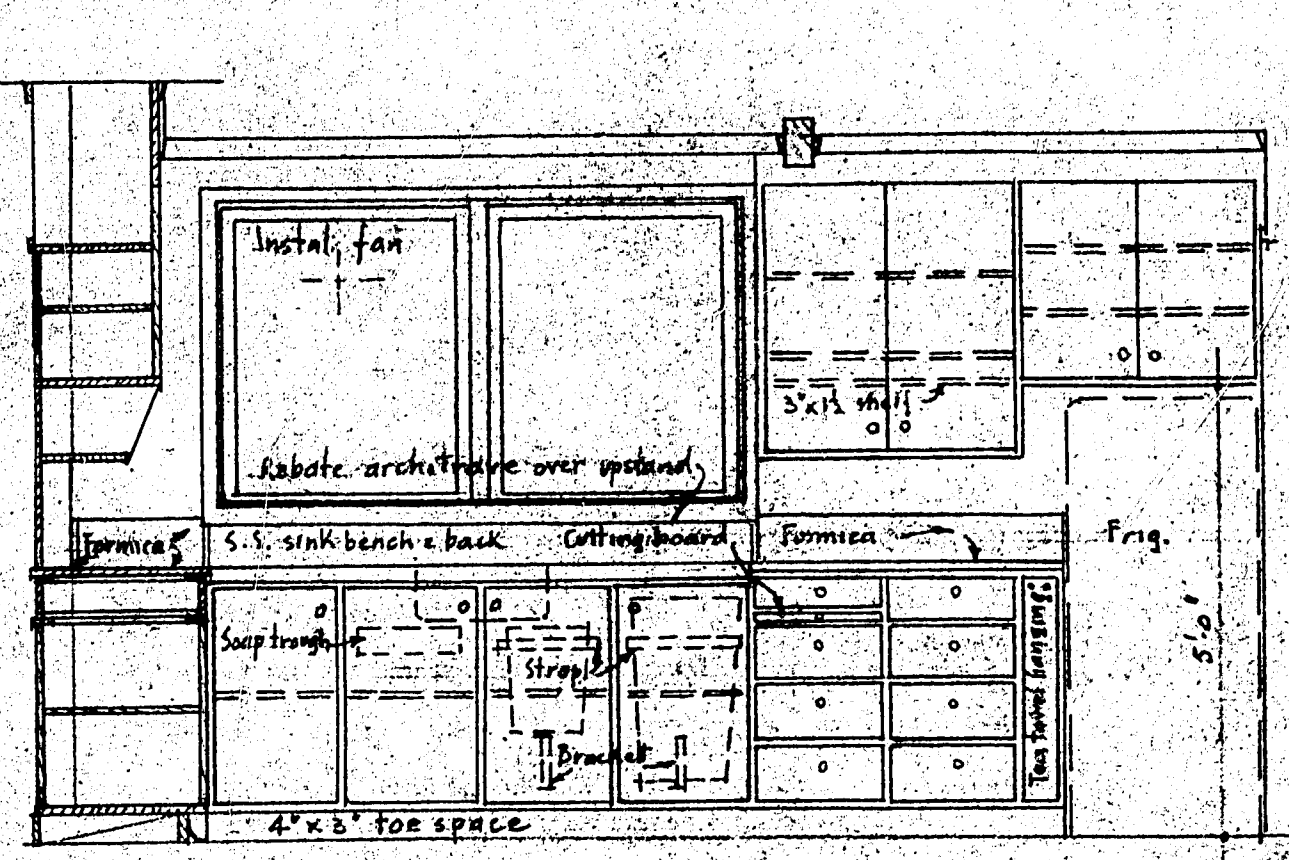 Instal fan
3"x1½ shelf
Rebate architrave over upstand
Formica
S.S. sink bench & back
Cutting board
Formica
Frig.
Soap trough
Strop
5'.0"
Tea towel hanging
Bracket
4"x3" toe space